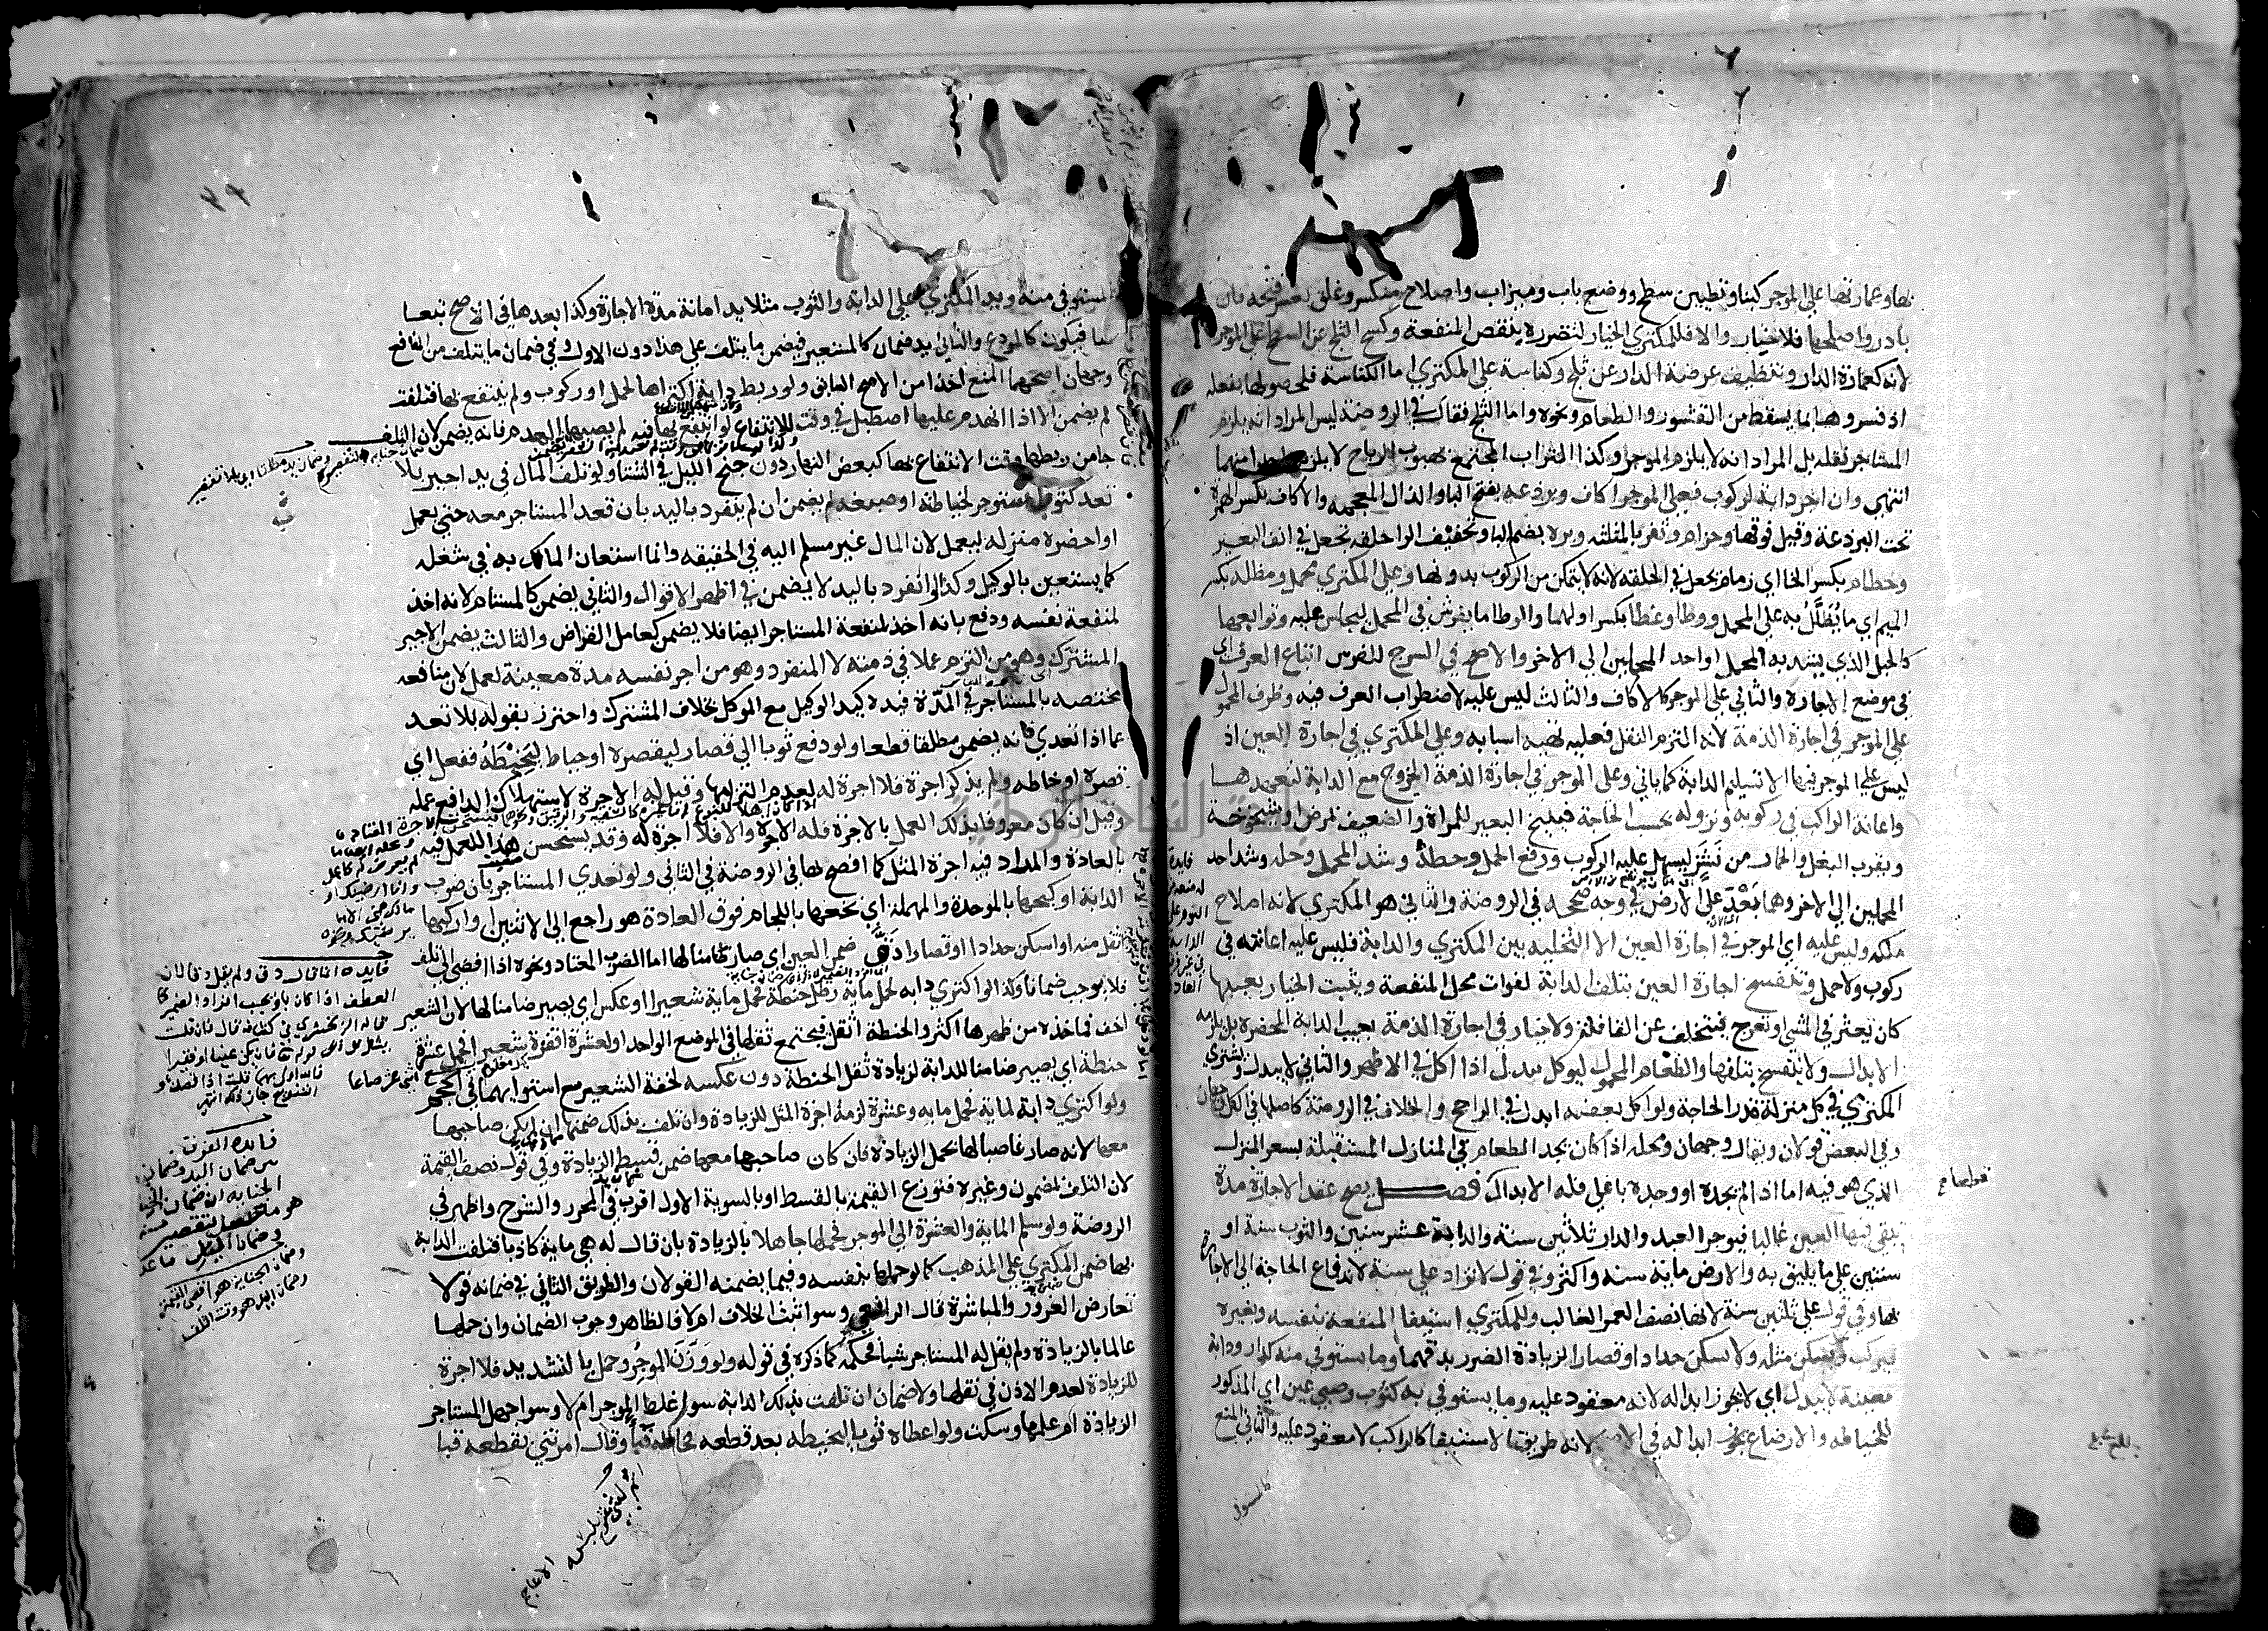 بها وعمارتها على الموجر كبنا وتطيين سطح ووضع باب وميزاب واصلاح منكسر وغلق يعسر فتحه فان
بادر واصلحها فلا خيار والا فللمكتري الخيار لتضرره بنقص المنفعة وكسح الثلج عن السطح على الموجر
لانه كعمارة الدار وتنظيف عرصة الدار عن ثلج وكناسة على المكتري اما الكناسة فلحصولها بفعله
اذ فسروها بما يسقط من القشور والطعام ونحوه واما الثلج فقال في الروضة ليس المراد انه يلزم
المستاجر نقله بل المراد انه لا يلزم الموجر وكذا التراب المجتمع بهبوب الرياح لا يلزم واحدا منهما
انتهى وان اجر دابة لركوب فعلى الموجر اكاف وبرذعه بفتح البا والذال المعجمه والاكاف بكسر الهمزة
تحت البرذعة وقيل فوقها وحزام وثفر بالمثلثه وبره بضم البا وتخفيف الرا حلقه تجعل في انف البعير
وخطام بكسر الخا اي زمام يجعل في الحلقه لانه لا يتمكن من الركوب بدونها وعلى المكتري محمل ومظله بكسر
الميم اي ما يُظلَّلُ به على المحمل ووطا وغطا بكسر اولهما والوطا ما يفرش في المحمل ليجلس عليه وتوابعها
كالحبل الذي يشد به المحمل او احد المحملين الى الاخر والاصح في السرج للفرس اتباع العرف اي
في موضع الاجارة والثاني على الموجر كالاكاف والثالث ليس عليه لاضطراب العرف فيه وظرف المحمول
على الموجر في اجارة الذمة لانه التزم النقل فعليه تهيه اسبابه وعلى المكتري في اجارة العين اذ
ليس على الموجر فيها الا تسليم الدابة كما ياتي وعلى الموجر في اجارة الذمة الخروج مع الدابة لتعهدها
واعانة الراكب في ركوبه ونزوله بحسب الحاجة فينيخ البعير للمراة والضعيف لمرض او شيخوخة
ويقرب البغل والحمار من نَشَزٍ ليسهل عليه الركوب ورفع الحمل وحطهُ وشد المحمل وحله وشد احد
المحملين الى الاخر وهما بَعْدُ على الارض في وجه صححه في الروضة والثاني هو المكتري لانه اصلاح
ملكه وليس عليه اي الموجر في اجارة العين الا التخليه بين المكتري والدابة فليس عليه اعانته في
ركوب ولا حمل وتنفسخ اجارة العين بتلف الدابة لفوات محل المنفعة ويثبت الخيار بعيبها
كان يعثر في المشي او يعرج فيتخلف عن القافلة ولا خيار في اجارة الذمة بعيب الدابة المحضره بل يلزمه
الابدال ولا ينفسخ بتلفها والطعام المحمول ليوكل يبدل اذا اكل في الاظهر والثاني لا يبدل ويشتري
المكتري في كل منزلة قدر الحاجة ولو اكل بعضه ابدل في الراجح والخلاف في الروضة كاصلها في الكل وجهان
وفي البعض قولان ويقال وجهان ومحله اذا كان يجد الطعام في المنازل المستقبلة بسعر المنزل
الذي هو فيه اما اذا لم يجده او وجده باغلى فله الابدال فصل يصح عقد الاجارة مدة
تبقى فيها العين غالبا فيوجر العبد والدار ثلاثين سنة والدابة عشر سنين والثوب سنة او
سنتين على ما يليق به والارض ماية سنة واكثر وفي قول لا تزاد على سنة لاندفاع الحاجة الى الاجارة
بها وفي قول على ثلثين سنة لانها نصف العمر الغالب وللمكتري استيفا المنفعة بنفسه وبغيره
فيركب ويسكن مثله ولا يسكن حدادا وقصارا لزيادة الضرر بدقهما وما يستوفي منه كدار ودابة
معينة لا يبدل اي لا يجوز ابداله لانه معقود عليه وما يستوفي به كثوب وصبي عين اي المذكور
للخياطة والارضاع يجوز ابداله في الاصح لانه طريق للاستيفا كالراكب لا معقود عليه والثاني المنع
كالمستوفى
المستوفى منه ويد المكتري على الدابة والثوب مثلا يد امانة مدة الاجارة وكذا بعدها في الاصح تبعا
لها فيكون كالمودع والثاني يد ضمان كالمستعير فيضمن ما يتلف على هذا دون الاول وفي ضمان ما يتلف من المنافع
وجهان اصحهما المنع اخذا من الاصح السابق ولو ربط دابة اكتراها لحمل او ركوب ولم ينتفع بها فتلفت
لم يضمن الا اذا انهدم عليها اصطبل في وقت للانتفاع لو انتفع بها فيه لم يصبها الهدم فانه يضمن لان التلف
جا من ربطها وقت الانتفاع بها كبعض النهار دون جنح الليل في الشتا ولو تلف المال في يد اجير بلا
تعد كثوب استوجر لخياطته او صبغه لم يضمن ان لم ينفرد باليد بان قعد المستاجر معه حتى يعمل
او احضره منزله ليعمل لان المال غير مسلم اليه في الحقيقه وانما استعان المالك به في شغله
كما يستعين بالوكيل وكذا لو انفرد باليد لا يضمن في اظهر الاقوال والثاني يضمن كالمستام لانه اخذ
لمنفعة نفسه ودفع بانه اخذ لمنفعة المستاجر ايضا فلا يضمن كعامل القراض والثالث يضمن الاجير
المشترك وهو من التزم عملا في ذمته لا المنفرد وهو من اجر نفسه مدة معينة لعمل لان منافعه
مختصه بالمستاجر في المدّة فيده كيد الوكيل مع الموكل بخلاف المشترك واحترز بقوله بلا تعد
عما اذا تعدى فانه يضمن مطلقا قطعا ولو دفع ثوبا الى قصار ليقصره او خياط لِيَخِيْطَهُ ففعل اي
قصره او خاطه ولم يذكر اجرة فلا اجرة له لعدم التزامها وقيل له الاجرة لاستهلاك الدافع عمله
وقيل ان كان معروفا بذلك العمل بالاجرة فله الاجرة والا فلا اجرة له وقد يستحسن هذا للعمل فيه
بالعادة والمراد فيه اجرة المثل كما افصح بها في الروضة في الثاني ولو تعدى المستاجر بان ضرب
الدابة او كبحها بالموحدة والمهملة اي نخعها باللجام فوق العادة هو راجع الى الاثنين او اركبها
اثقل منه او اسكن حدادا او قصارا دَقَّ ضمن العين اي صار ضامنا لها اما الضرب المعتاد ونحوه اذا افضى الى تلف
فلا يوجب ضمانا وكذا لو اكترى دابه لحمل ماية رطل حنطة فحمل ماية شعيرا او عكس اي يصير ضامنا لها لان الشعير
اخف فماخذه من ظهرها اكثر والحنطة اثقل فيجتمع ثقلها في الموضع الواحد او لعشرة اقفزة شعير فحمل عشرة
حنطة اي يصير ضامنا للدابة لزيادة ثقل الحنطة دون عكسه لخفة الشعير مع استوايهما في الحجم
ولو اكترى دابة لماية فحمل مايه وعشرة لزمه اجرة المثل للزيادة وان تلفت بذلك ضمنها ان لم يكن صاحبها
معها لانه صار غاصبا لها بحمل الزيادة فان كان صاحبها معها ضمن قسط الزيادة وفي قول نصف القيمة
لان التلف بمضمون وغيره فتوزع القيمة بالقسط او بالسوية الاول اقرب في المحرر والشرح واظهر في
الروضة ولو سلم الماية والعشرة الى الموجر فحملها جاهلا بالزيادة بان قال له هي ماية كاذبا فتلفت الدابة
بها ضمن المكتري على المذهب كما لو حملها بنفسه وفيما يضمنه القولان والطريق الثاني في ضمانه قولا
تعارض الغرور والمباشرة قال الرافعي وسوا ثبت الخلاف ام لا فالظاهر وجوب الضمان وان حملها
عالما بالزيادة ولم يقل له المستاجر شيا فحكمه كما ذكره في قوله ولو وَزَنَ الموجرُ وحمل يا لتشديد فلا اجرة
للزيادة لعدم الاذن في نقلها ولا ضمان ان تلفت بذلك الدابة سوا غلط الموجر ام لا وسوا جهل المستاجر
الزيادة ام علمها وسكت ولو اعطاه ثوبا ليخيطه بعد قطعه فخاطه قبا وقال امرتني بقطعه قبا
فايده انما قال دق ولم يقل دقا لان
العطف اذا كان باو يجب افراد الضمير كما
قاله الزمخشري
فايده الفرق
بين ضمان اليد وضمان
الجنايه ان ضمان